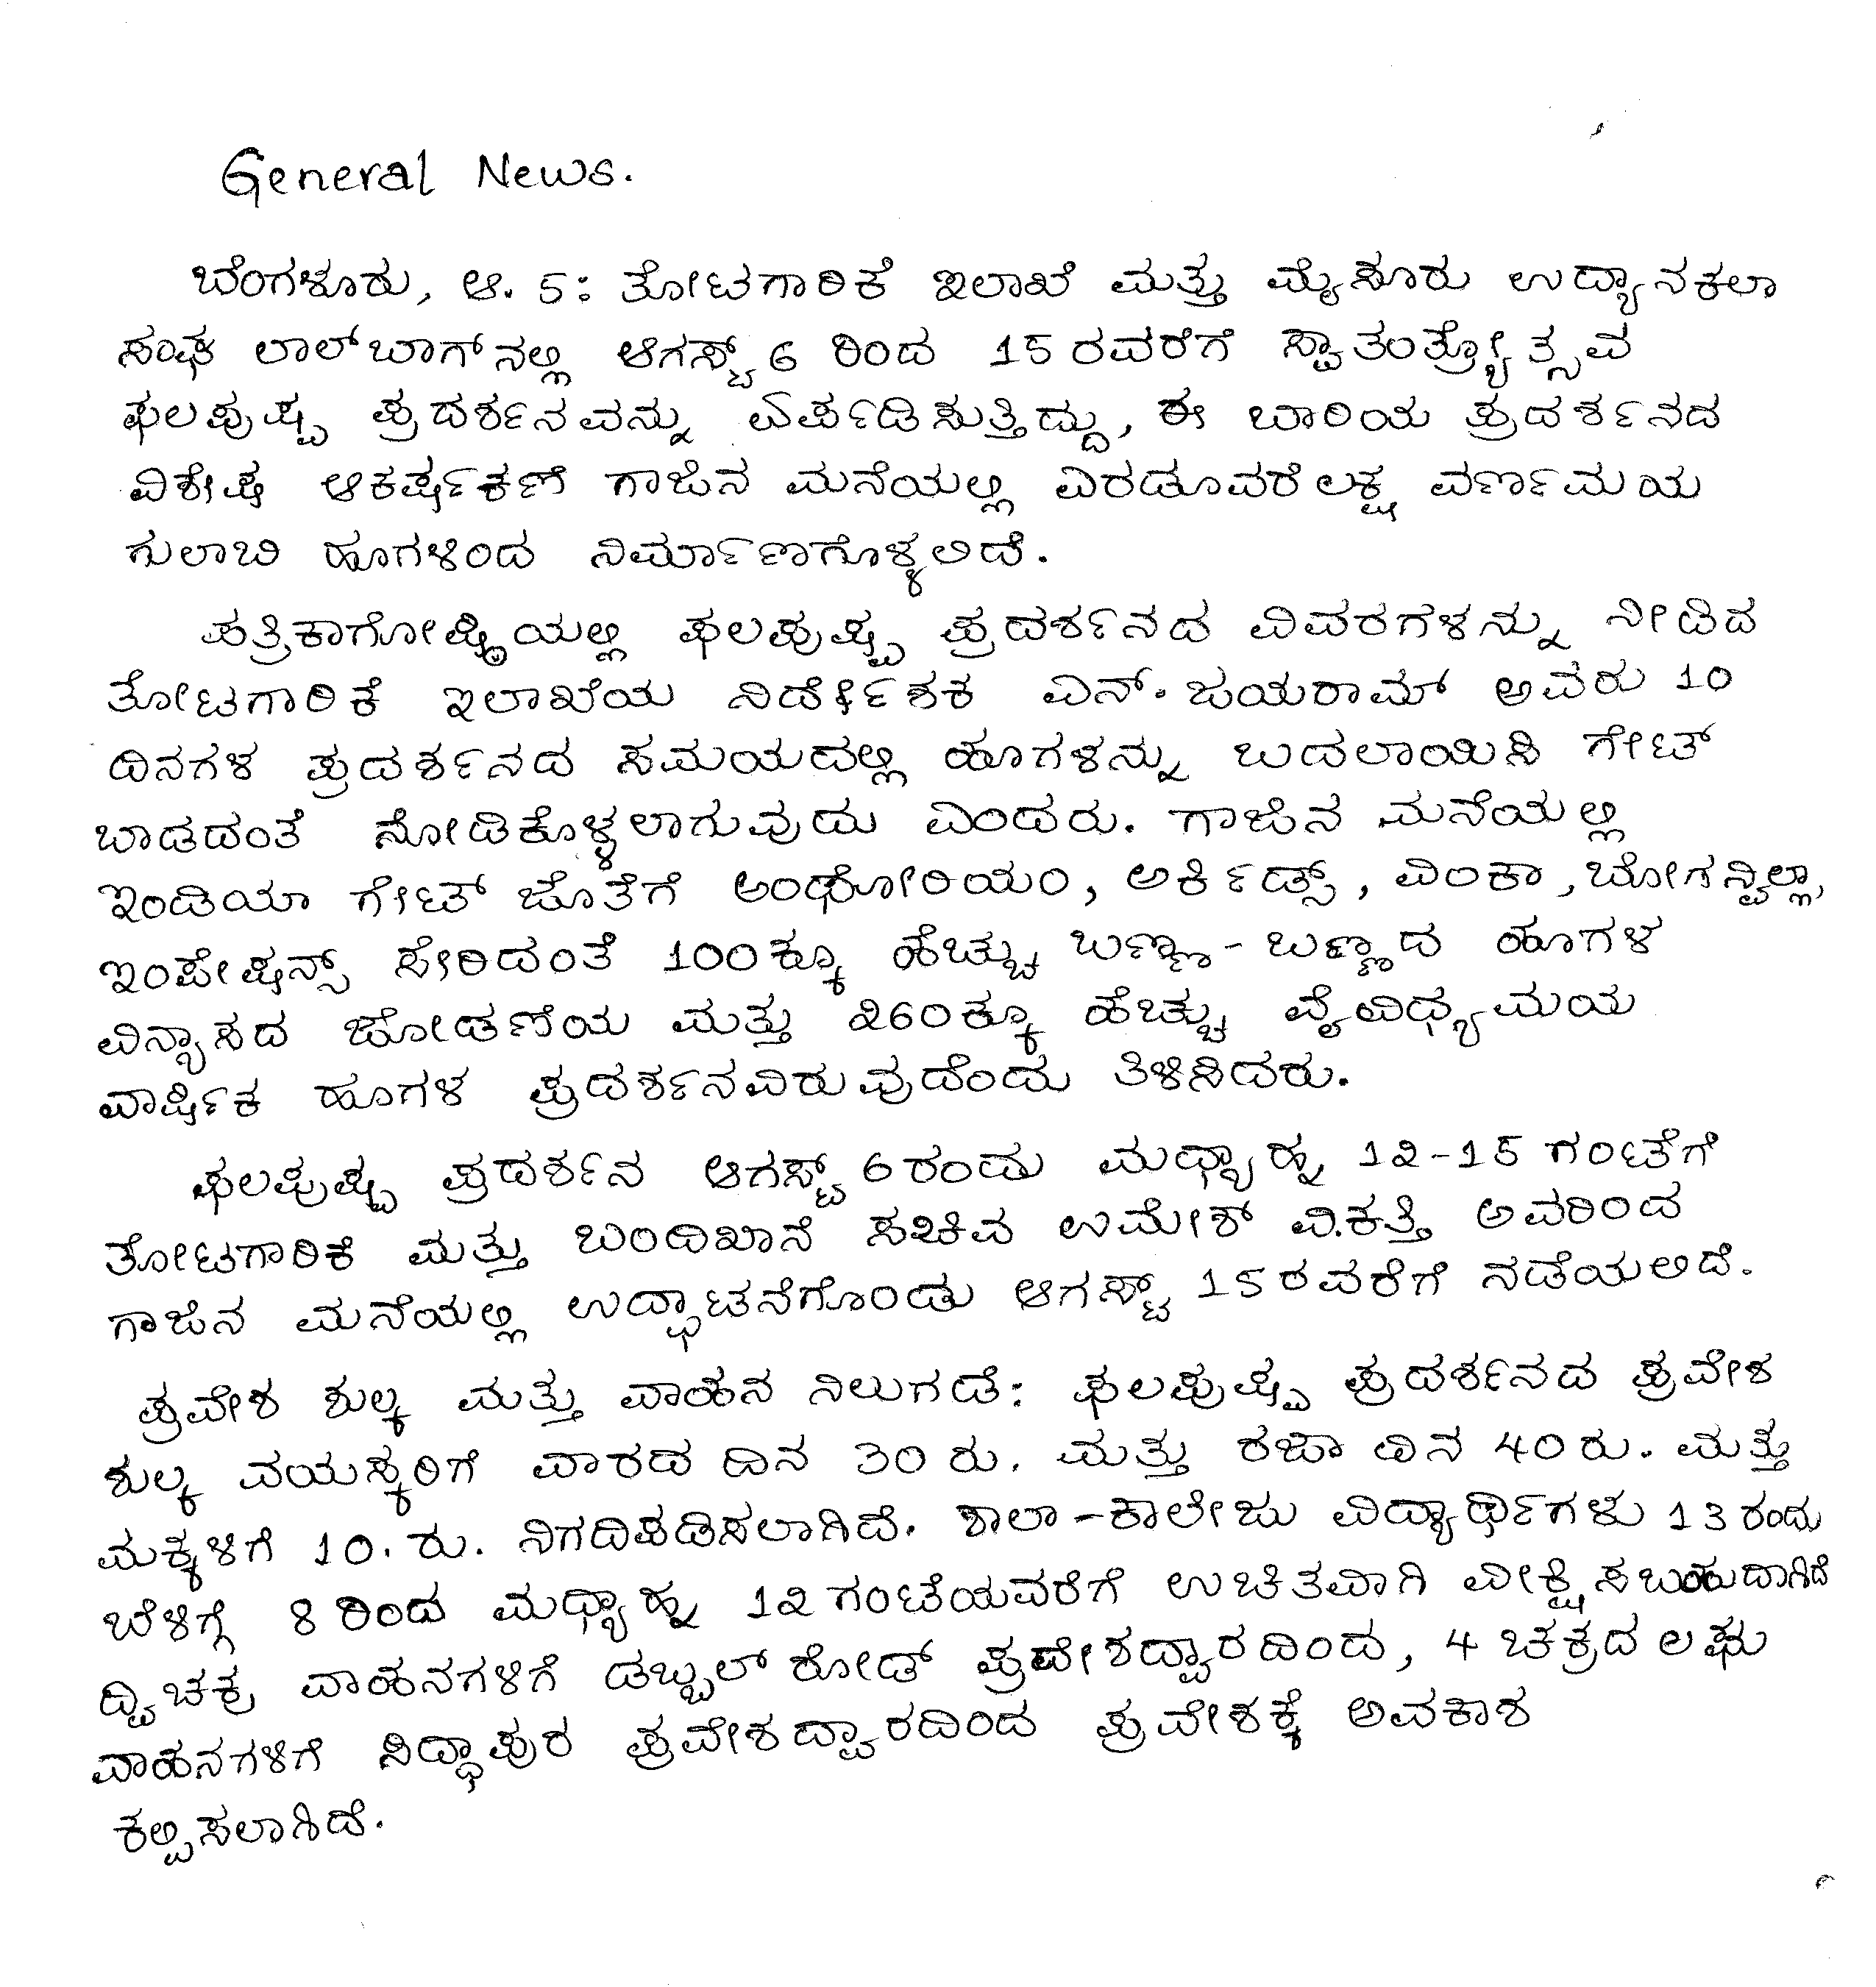 General News.
ಬೆಂಗಳೂರು, ಆ. 5: ತೋಟಗಾರಿಕೆ ಇಲಾಖೆ ಮತ್ತು ಮೈಸೂರು ಉದ್ಯಾನಕಲಾ
ಸಂಘ ಲಾಲ್‌ಬಾಗ್‌ನಲ್ಲಿ ಆಗಸ್ಟ್ 6 ರಿಂದ 15 ರವರೆಗೆ ಸ್ವಾತಂತ್ರ್ಯೋತ್ಸವ
ಫಲಪುಷ್ಪ ಪ್ರದರ್ಶನವನ್ನು ಏರ್ಪಡಿಸುತ್ತಿದ್ದು, ಈ ಬಾರಿಯ ಪ್ರದರ್ಶನದ
ವಿಶೇಷ ಆಕರ್ಷಕಣೆ ಗಾಜಿನ ಮನೆಯಲ್ಲಿ ಎರಡೂವರೆ ಲಕ್ಷ ವರ್ಣಮಯ
ಗುಲಾಬಿ ಹೂಗಳಿಂದ ನಿರ್ಮಾಣಗೊಳ್ಳಲಿದೆ.
ಪತ್ರಿಕಾಗೋಷ್ಠಿಯಲ್ಲಿ ಫಲಪುಷ್ಪ ಪ್ರದರ್ಶನದ ವಿವರಗಳನ್ನು ನೀಡಿದ
ತೋಟಗಾರಿಕೆ ಇಲಾಖೆಯ ನಿರ್ದೇಶಕ ಎನ್. ಜಯರಾಮ್ ಅವರು 10
ದಿನಗಳ ಪ್ರದರ್ಶನದ ಸಮಯದಲ್ಲಿ ಹೂಗಳನ್ನು ಬದಲಾಯಿಸಿ ಗೇಟ್
ಬಾಡದಂತೆ ನೋಡಿಕೊಳ್ಳಲಾಗುವುದು ಎಂದರು. ಗಾಜಿನ ಮನೆಯಲ್ಲಿ
ಇಂಡಿಯಾ ಗೇಟ್ ಜೊತೆಗೆ ಅಂಥೋರಿಯಂ, ಅರ್ಕಿಡ್ಸ್, ವಿಂಕಾ, ಬೋಗನ್ವಿಲ್ಲಾ,
ಇಂಪೇಷನ್ಸ್ ಸೇರಿದಂತೆ 100ಕ್ಕೂ ಹೆಚ್ಚು ಬಣ್ಣ-ಬಣ್ಣದ ಹೂಗಳ
ವಿನ್ಯಾಸದ ಜೋಡಣೆಯ ಮತ್ತು 260ಕ್ಕೂ ಹೆಚ್ಚು ವೈವಿಧ್ಯಮಯ
ವಾರ್ಷಿಕ ಹೂಗಳ ಪ್ರದರ್ಶನವಿರುವುದೆಂದು ತಿಳಿಸಿದರು.
ಫಲಪುಷ್ಪ ಪ್ರದರ್ಶನ ಆಗಸ್ಟ್ 6ರಂದು ಮಧ್ಯಾಹ್ನ 12-15 ಗಂಟೆಗೆ
ತೋಟಗಾರಿಕೆ ಮತ್ತು ಬಂದಿಖಾನೆ ಸಚಿವ ಉಮೇಶ್ ವಿ.ಕತ್ತಿ ಅವರಿಂದ
ಗಾಜಿನ ಮನೆಯಲ್ಲಿ ಉದ್ಘಾಟನೆಗೊಂಡು ಆಗಸ್ಟ್ 15ರವರೆಗೆ ನಡೆಯಲಿದೆ.
ಪ್ರವೇಶ ಶುಲ್ಕ ಮತ್ತು ವಾಹನ ನಿಲುಗಡೆ: ಫಲಪುಷ್ಪ ಪ್ರದರ್ಶನದ ಪ್ರವೇಶ
ಶುಲ್ಕ ವಯಸ್ಕರಿಗೆ ವಾರದ ದಿನ 30 ರು. ಮತ್ತು ರಜಾ ದಿನ 40 ರು. ಮತ್ತು
ಮಕ್ಕಳಿಗೆ 10. ರು. ನಿಗದಿಪಡಿಸಲಾಗಿದೆ. ಶಾಲಾ-ಕಾಲೇಜು ವಿದ್ಯಾರ್ಥಿಗಳು 13 ರಂದು
ಬೆಳಿಗ್ಗೆ 8 ರಿಂದ ಮಧ್ಯಾಹ್ನ 12 ಗಂಟೆಯವರೆಗೆ ಉಚಿತವಾಗಿ ವೀಕ್ಷಿಸಬಹುದಾಗಿದೆ
ದ್ವಿಚಕ್ರ ವಾಹನಗಳಿಗೆ ಡಬ್ಬಲ್ ರೋಡ್ ಪ್ರವೇಶದ್ವಾರದಿಂದ, 4 ಚಕ್ರದ ಲಘು
ವಾಹನಗಳಿಗೆ ಸಿದ್ಧಾಪುರ ಪ್ರವೇಶದ್ವಾರದಿಂದ ಪ್ರವೇಶಕ್ಕೆ ಅವಕಾಶ
ಕಲ್ಪಿಸಲಾಗಿದೆ.